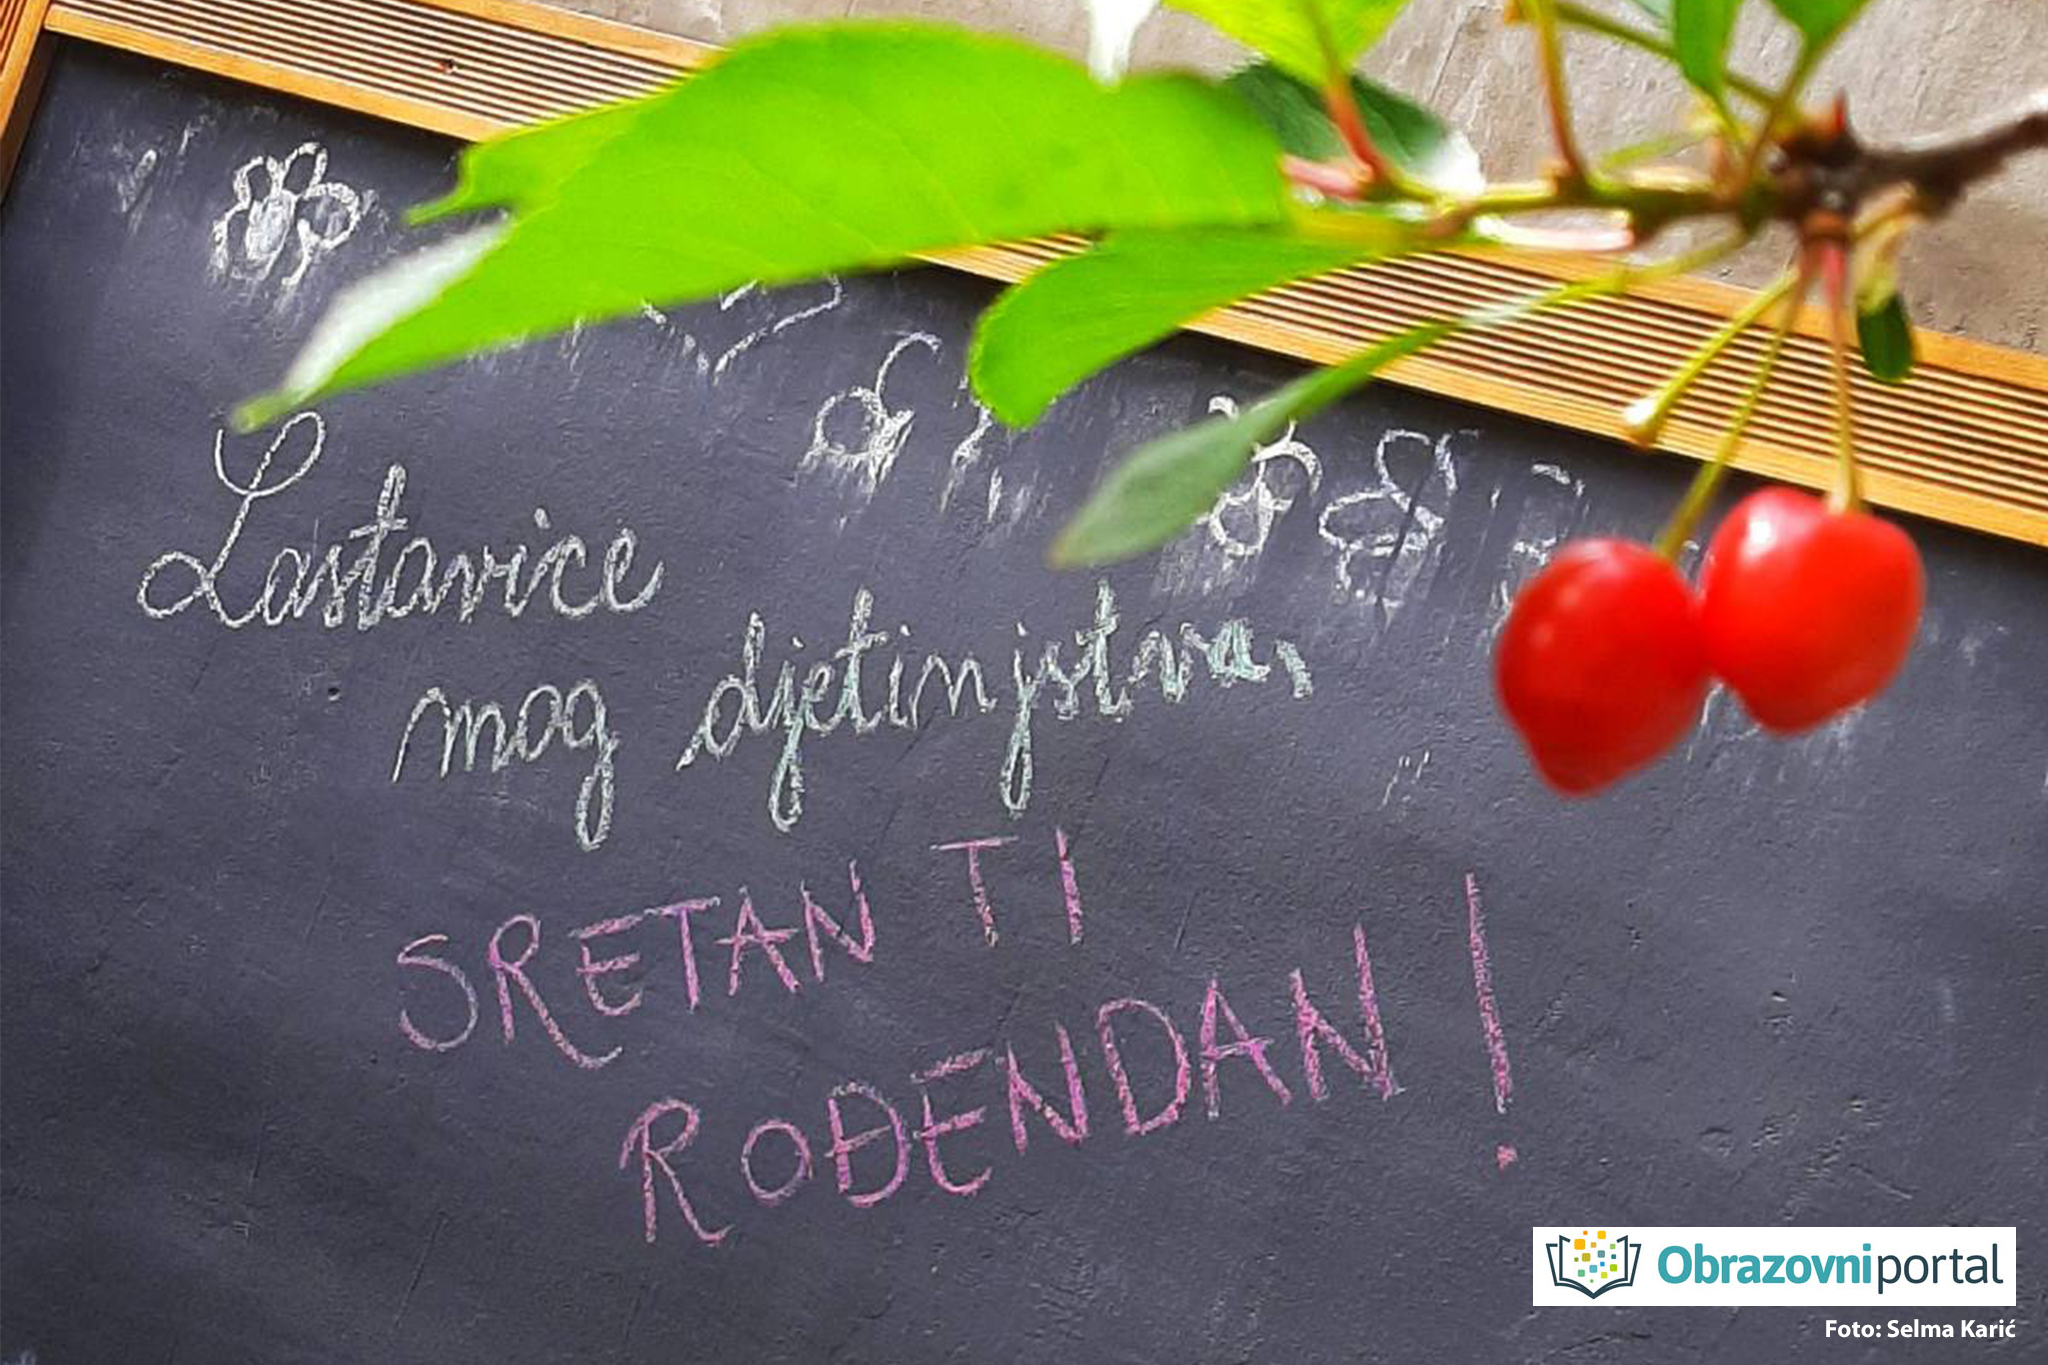 Lastavice
mog djetinjstva,
SRETAN TI
ROĐENDAN!
Obrazovniportal
Foto: Selma Karić